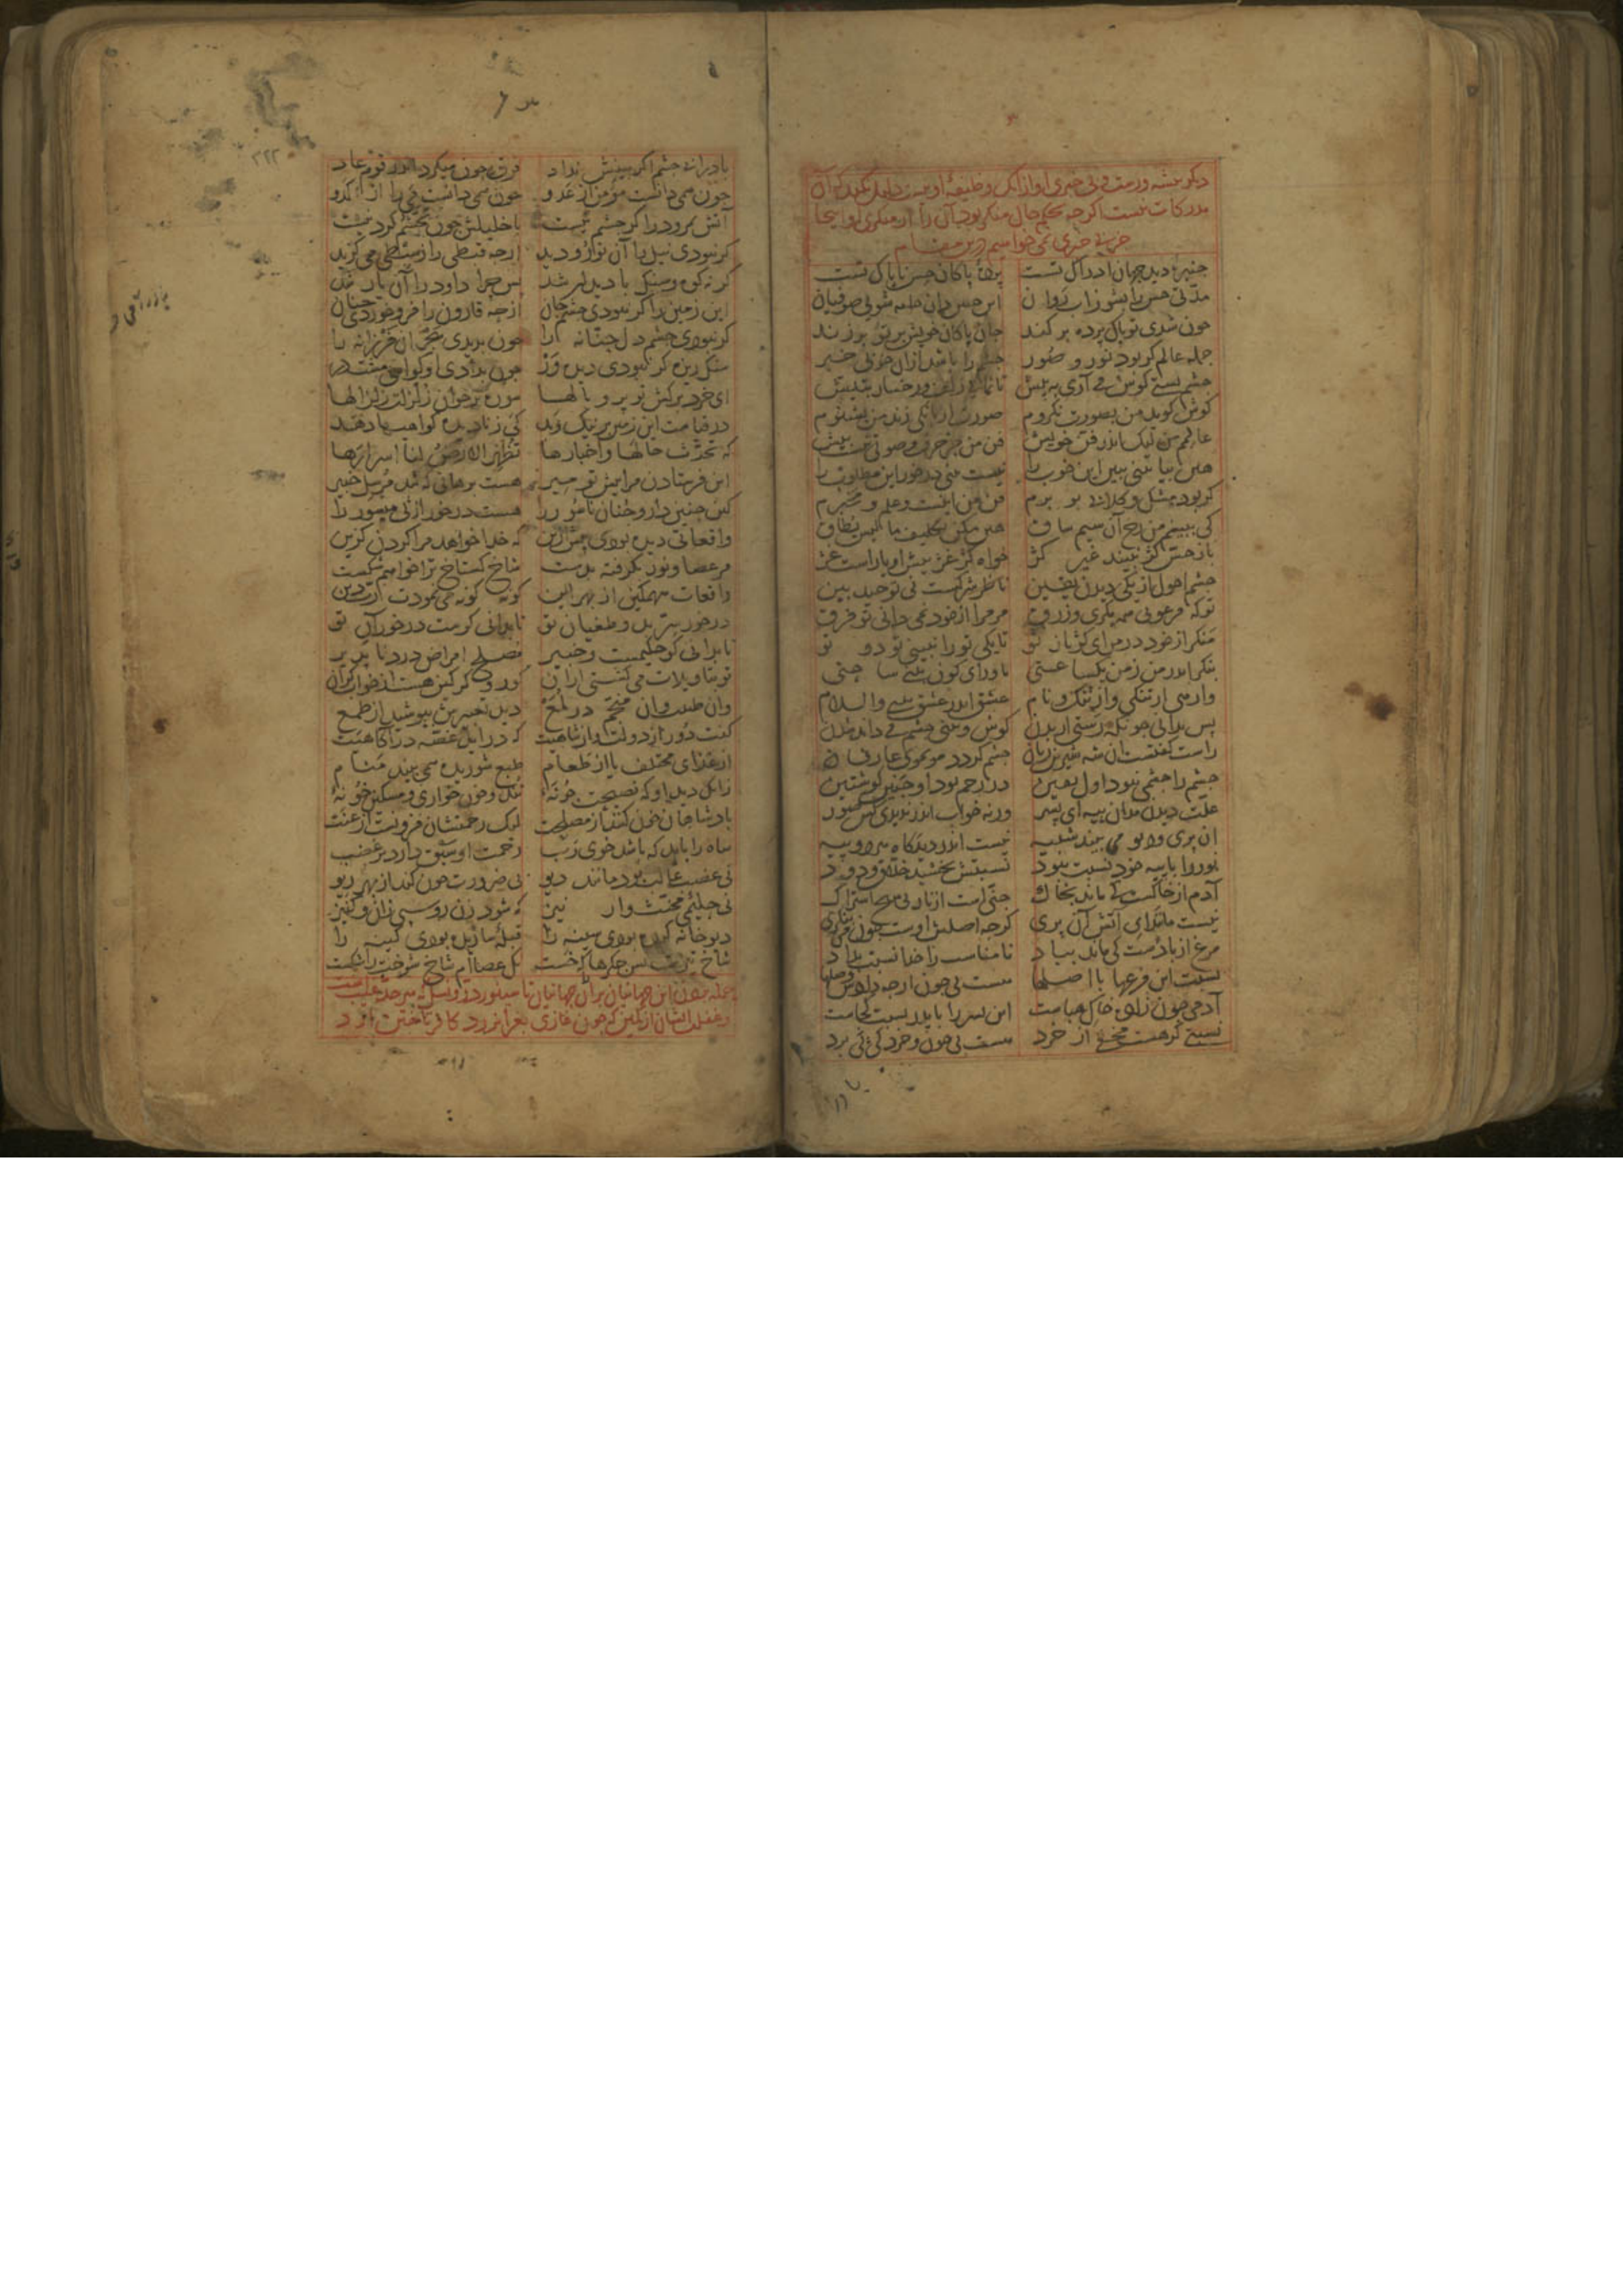 دیگر باشد و رمت و بی خبری او از آنک وظیفهٔ او نیست دلیل نکند که آن
مدرکات نیست اگر چه بحکم حال منکر بود آن را از منکری او اینجا
جز بی خبری نمی خواهیم درین مقام
جنبرهٔ دید جهان ادراک تست پردهٔ پاکان حس ناپاک تست
مدتی حس را بشو ز آب روان این چنین دان جامه شوی صوفیان
چون شدی تو پاک پرده بر کند جان پاکان خویش بر تو بر زند
جمله عالم گر بود نور و صور چشم را باشد از آن خوبی خبر
چشم بستی گوش می آری به پیش تا نمایی زلف و رخسار بتیش
گوش گوید من بصورت نگروم صورت ار بانگی زند من بشنوم
عالمم من لیک اندر فن خویش فن من جز حرف و صوتی نیست بیش
هین بیا بینی ببین این خوب را نیست بینی در خور این مطلوب را
گر بود مشک و گلابی بو برم فن من اینست و علم و مخبرم
کی ببینم من رخ آن سیم ساق هین مکن تکلیف ما لیس یطاق
باز حس کژ نبیند غیر کژ خواه کژ غژ پیش او یا راست غژ
چشم احول از یکی دیدن یقین ناظر شرکست نی توحید بین
تو که فرعونی همه مکری و زرق مر مرا از خود نمی دانی تو فرق
منگر از خود در من ای کژباز تو تا یکی تو را نبینی تو دو تو
بنگر اندر من ز من یکساعتی تا ورای کون بینی ساحتی
وارهی از تنگی و از ننگ و نام عشق اندر عشق بینی والسلام
پس بدانی چونکه رستی از بدن گوش و بینی چشم می داند شدن
راست گفتست آن شه شیرین زبان چشم گردد مو بموی عارفان
چشم را چشمی نبود اول یقین در رحم بود او جنین گوشتین
علت دیدن مدان پیه ای پسر ورنه خواب اندر ندیدی کس صور
آن پری و دیو می بیند شبیه نیست اندر دیدگاه هر دو پیه
نور را با پیه خود نسبت نبود نسبتش بخشید خلاق ودود
آدم از خاکست کی ماند بخاک جنی است از نار بی هیچ اشتراک
نیست مانندای آتش آن پری گر چه اصلش اوست چون می بنگری
مرغ از بادست کی ماند بباد نامناسب را خدا نسبت بداد
نسبت این فرعها با اصلها هست بی چون ار چه دادش وصلها
آدمی چون زادهٔ خاک هباست این پسر را با پدر نسبت کجاست
نسبتی گر هست مخفی از خرد هست بی چون و خرد کی پی برد
باد را بی چشم اگر بینش نداد فرق چون میکرد اندر قوم عاد
چون همی دانست مؤمن از عدو چون همی دانست می را از کدو
آتش نمرود را گر چشم نیست با خلیلش چون تجشم کرد نیست
گر نبودی نیل را آن نور و دید از چه قبطی را ز سبطی می گزید
گر نه کوه و سنگ با دیدار شد پس چرا داود را آن یار شد
این زمین را گر نبودی چشم جان از چه قارون را فرو خورد آن چنان
گر نبودی چشم دل حنانه را چون بدیدی هجر آن فرزانه را
سنگ ریزه گر نبودی دیده ور چون بدادی او گواهی مشت در
ای خرد برکش تو پر و بالها سوره بر خوان زلزلت زلزالها
در قیامت این زمین بر نیک و بد کی ز نادیده گواهی ها دهد
که تحدث حالها و اخبارها تظهر الارض لنا اسرارها
این فرستادن مرا پیش تو میر هست برهانی که شد مرسل خبیر
کین چنین دارو چنان ناسور را هست درخور از پی میسور را
واقعاتی دیده بودی پیش ازین که خدا خواهد مرا کردن گزین
من عصا و نور بگرفته بدست شاخ گستاخ ترا خواهم شکست
واقعات سهمگین از بهر این گونه گونه می نمودت رب دین
در خور سر بد و طغیان تو تا بدانی کوست در خورآن تو
تا بدانی کو حکیمست و خبیر مصلح امراض درد ناپذیر
تو بتاویلات می گشتی از آن کور و کر کین هست از خواب گران
وان طبیب و ان منجم در لمع دید تعبیرش بپوشید از طمع
گفت دور از دولت و از شاهیت که در آید غصه در آگاهیت
از غذای مختلف یا از طعام طبع شوریده همی بیند منام
زانک دید او که نصیحت جو نهٔ تند و خون خواری و مسکین خو نهٔ
پادشاهان خون کنند از مصلحت لیک رحمتشان فزونست از عنت
شاه را باید که باشد خوی رب رحمت او سبق دارد بر غضب
نی غضب غالب بود مانند دیو بی ضرورت خون کند از بهر ریو
نی حلیمی مخنث وار نیز که شود زن روسپی زان و کنیز
دیو خانه کرده بودی سینه را قبلهٔ سازیده بودی کینه را
شاخ تیزت بس جگرها را که خست نک عصاام شاخ شوخت را شکست
حمله بردن این جهانیان بر آن جهانیان تا سینور ذر و نسل که سر حد غیب است
و غفلت ایشان از کمین که چون غازی بغزا نرود کافر تاختن آورد